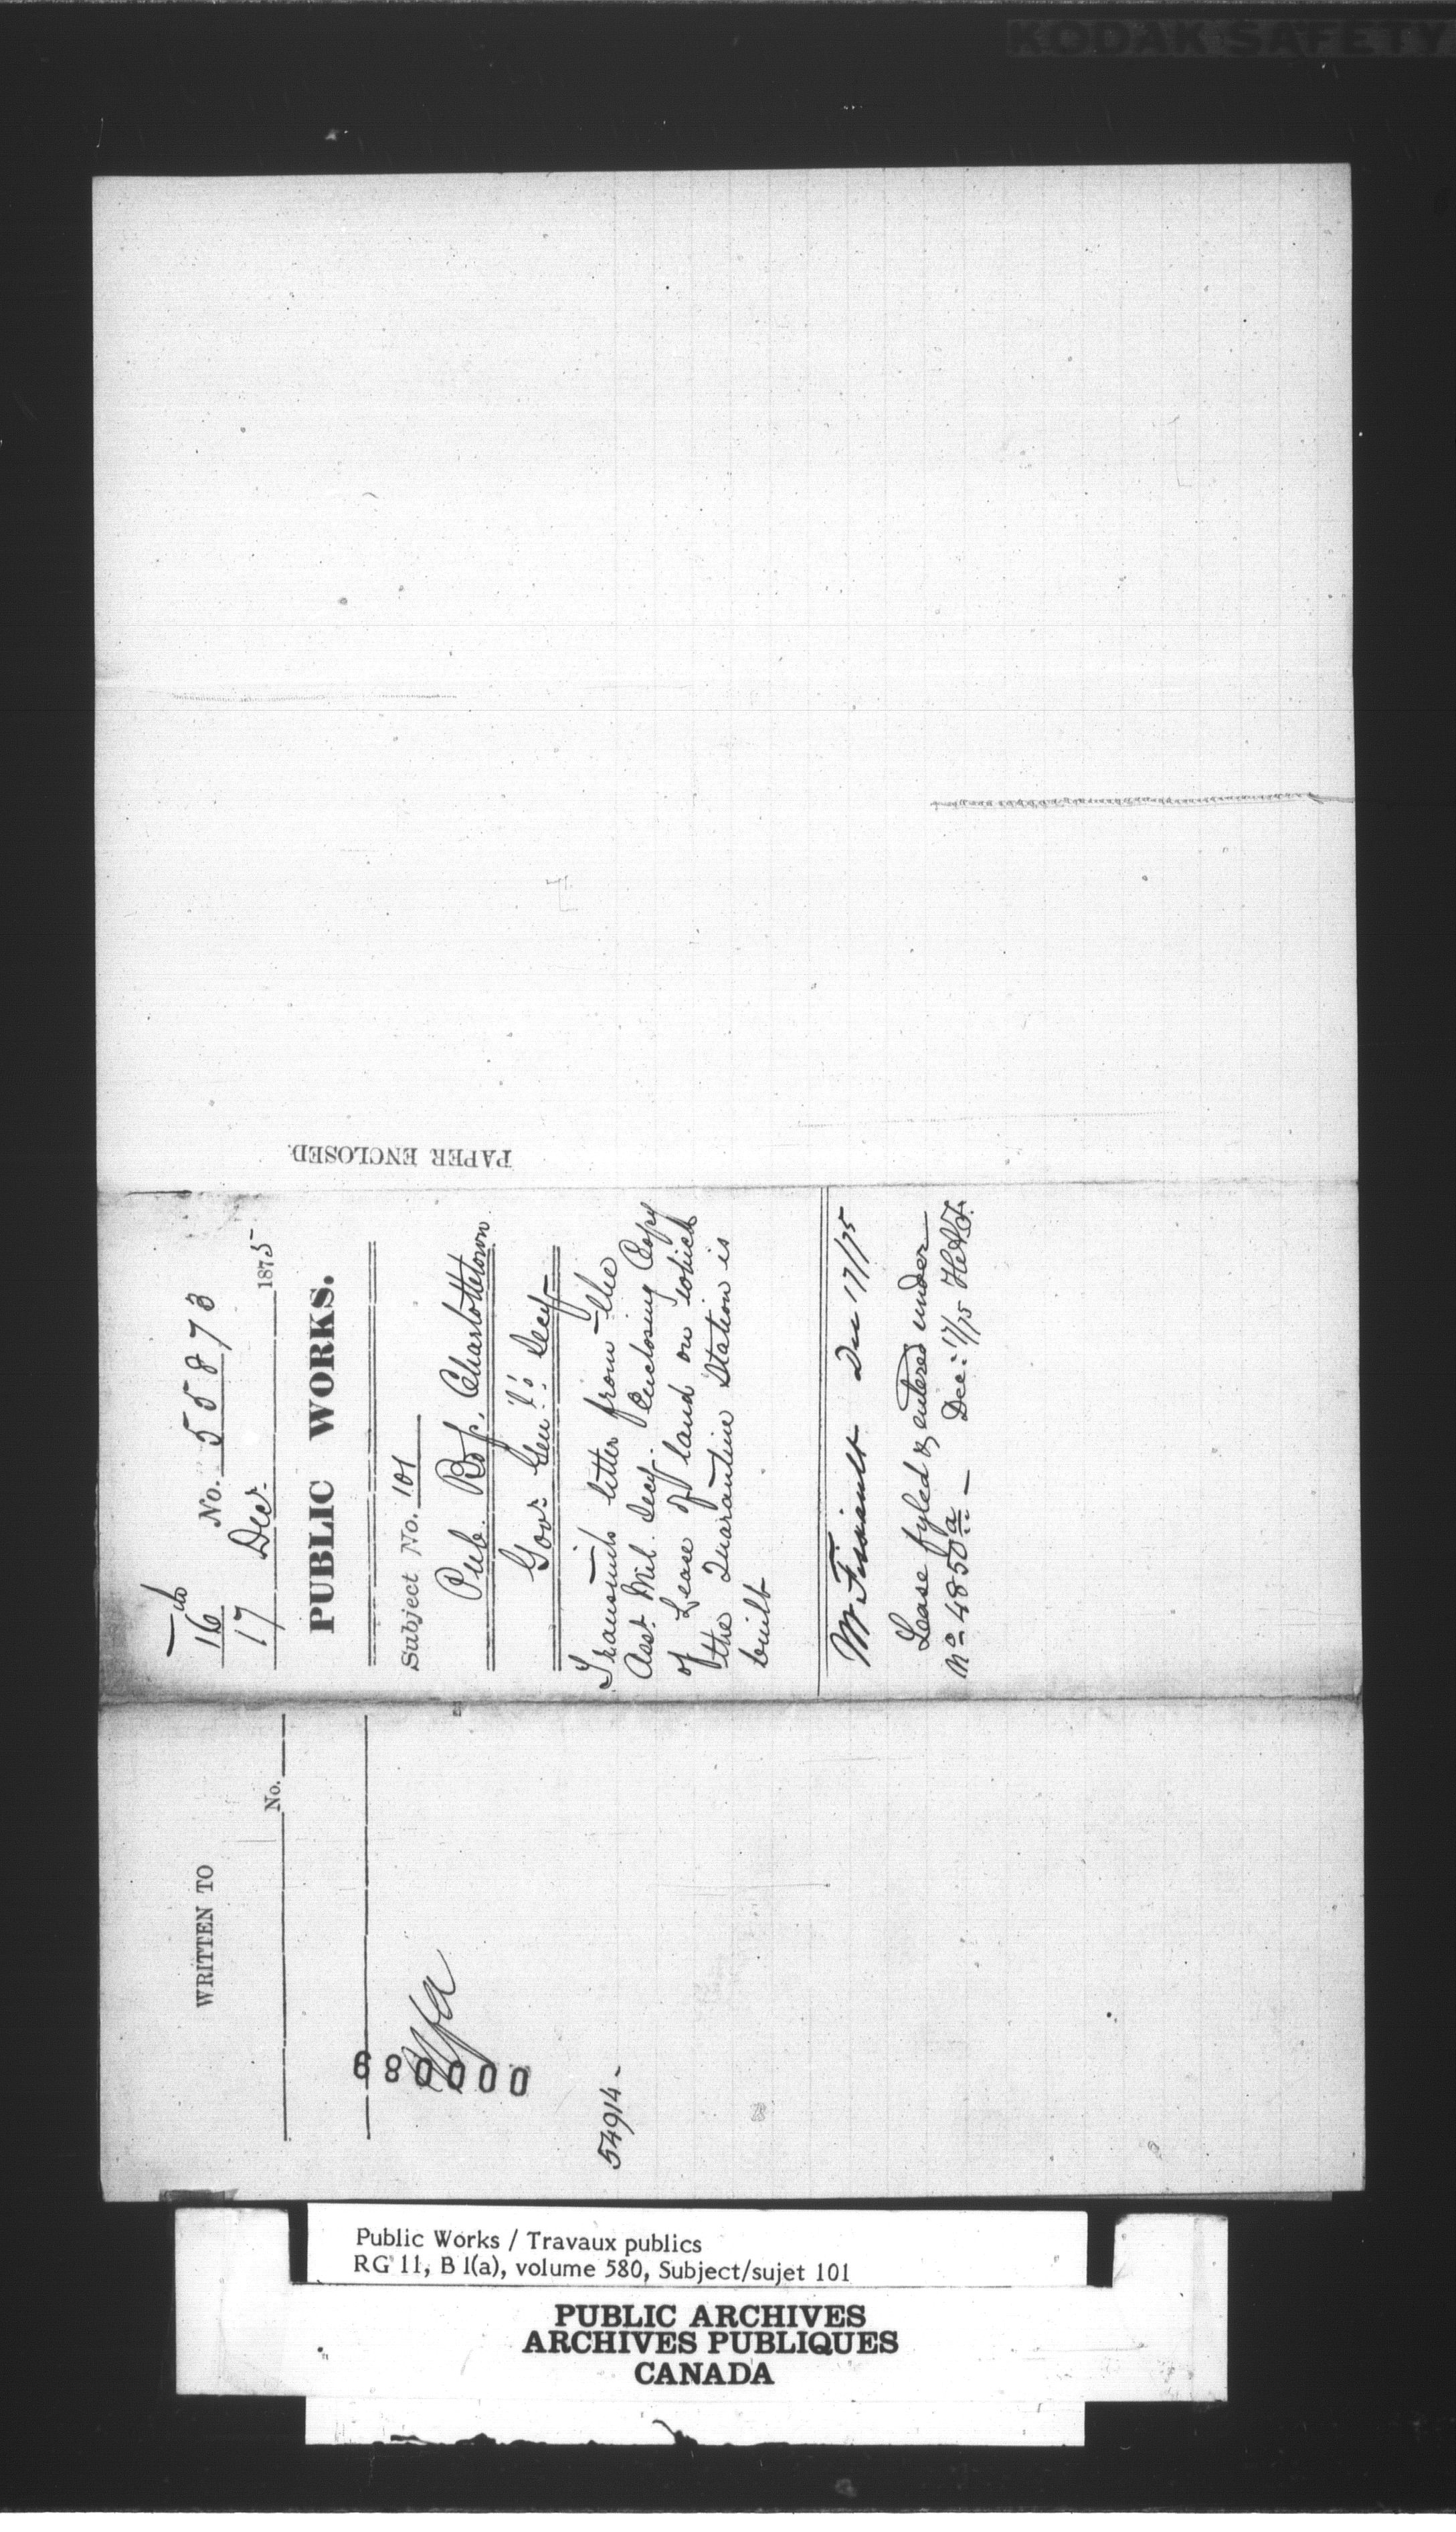 KODAK SAFETY
PAPER ENCLOSED.
16
No. 55873
17 Decr. 1875
PUBLIC WORKS.
Subject No. 101
Pub. Bgs, Charlottetown
Govr. Genl's. Secy
Transmits letter from the
Asst. Mil. Secy. Enclosing Copy
of Lease of land on which
the Quarantine Station is
built
Mr Fissiault Dec 17/75
Lease fyled & entered under
No 4850a — Dec: 17/75
WRITTEN TO
No.
680000
54914 -
Public Works / Travaux publics
RG 11, B 1(a), volume 580, Subject/sujet 101
PUBLIC ARCHIVES
ARCHIVES PUBLIQUES
CANADA